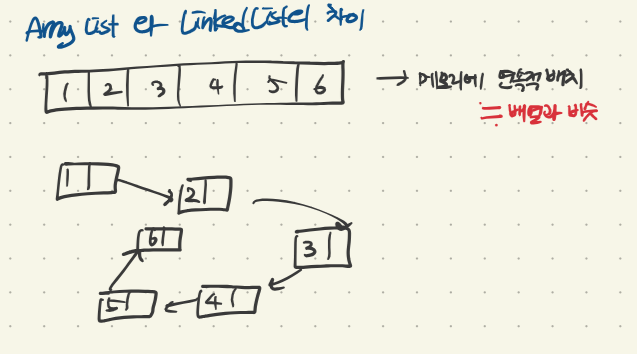 Array List 와 LinkedList의 차이
1 2 3 4 5 6 → 메모리에 연속적 배치
= 배열과 비슷
1 2
6 3
5 4